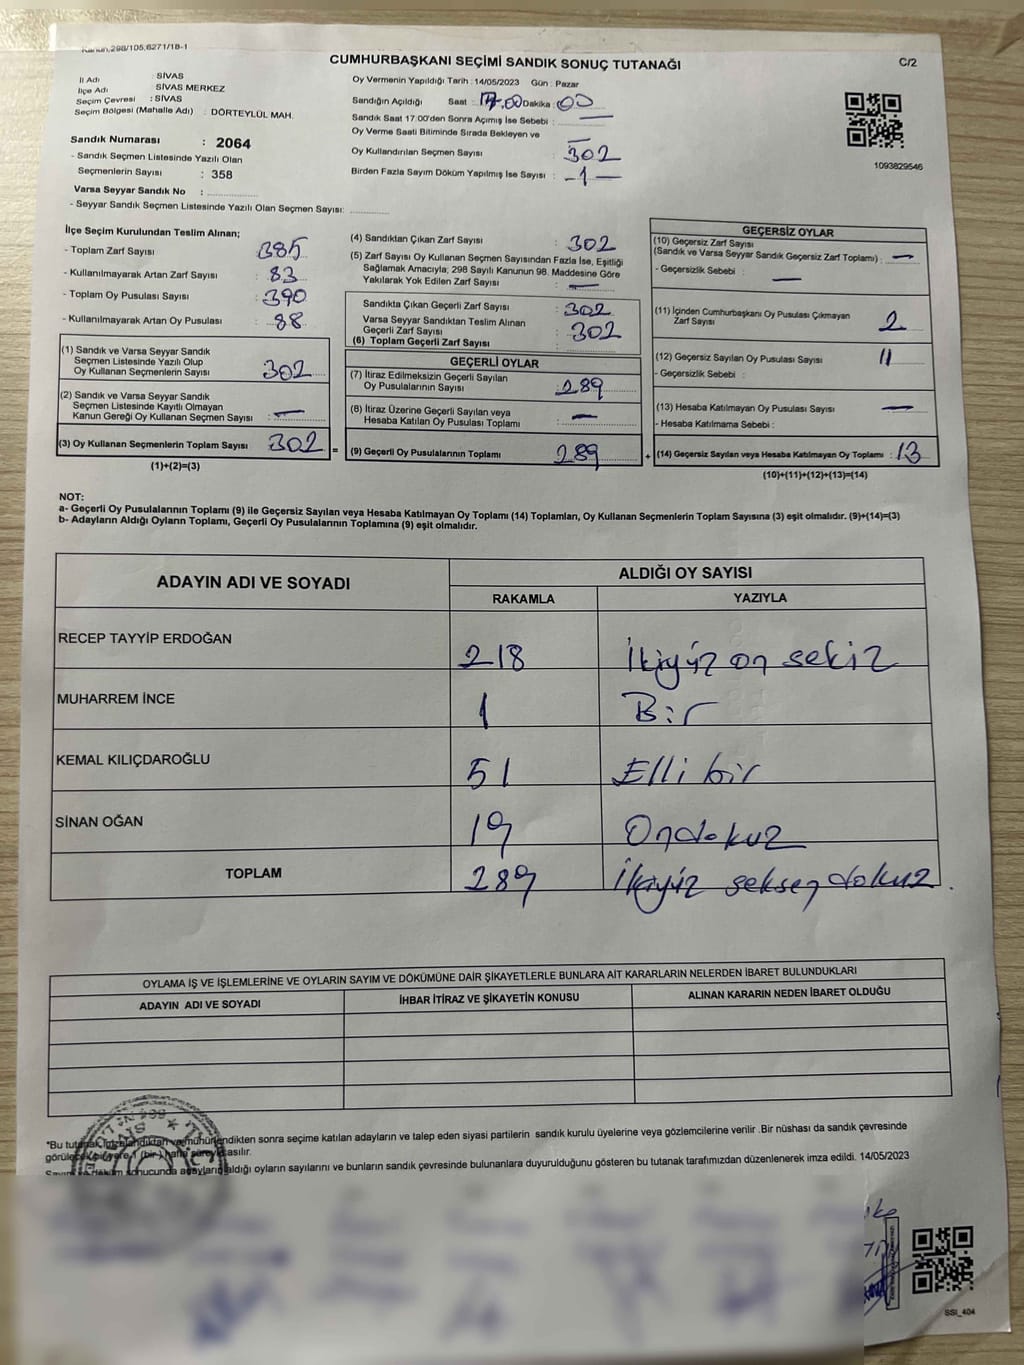 Kanun,298/105,6271/18-1
CUMHURBAŞKANI SEÇİMİ SANDIK SONUÇ TUTANAĞI
C/2
İl Adı : SİVAS
İlçe Adı : SİVAS MERKEZ
Seçim Çevresi : SİVAS
Seçim Bölgesi (Mahalle Adı) : DÖRTEYLÜL MAH.
Sandık Numarası : 2064
- Sandık Seçmen Listesinde Yazılı Olan
Seçmenlerin Sayısı : 358
Varsa Seyyar Sandık No :
- Seyyar Sandık Seçmen Listesinde Yazılı Olan Seçmen Sayısı:
Oy Vermenin Yapıldığı Tarih : 14/05/2023 Gün : Pazar
Sandığın Açıldığı Saat : 17.00 Dakika : 00
Sandık Saat 17:00'den Sonra Açımış İse Sebebi : —
Oy Verme Saati Bitiminde Sırada Bekleyen ve
Oy Kullandırılan Seçmen Sayısı : 302
Birden Fazla Sayım Döküm Yapılmış İse Sayısı : -1-
1093829546
İlçe Seçim Kurulundan Teslim Alınan;
- Toplam Zarf Sayısı : 385
- Kullanılmayarak Artan Zarf Sayısı : 83
- Toplam Oy Pusulası Sayısı : 390
- Kullanılmayarak Artan Oy Pusulası : 88
(1) Sandık ve Varsa Seyyar Sandık
Seçmen Listesinde Yazılı Olup
Oy Kullanan Seçmenlerin Sayısı : 302
(2) Sandık ve Varsa Seyyar Sandık
Seçmen Listesinde Kayıtlı Olmayan
Kanun Gereği Oy Kullanan Seçmen Sayısı : —
(3) Oy Kullanan Seçmenlerin Toplam Sayısı : 302
(1)+(2)=(3)
(4) Sandıktan Çıkan Zarf Sayısı : 302
(5) Zarf Sayısı Oy Kullanan Seçmen Sayısından Fazla İse, Eşitliği
Sağlamak Amacıyla; 298 Sayılı Kanunun 98. Maddesine Göre
Yakılarak Yok Edilen Zarf Sayısı : —
Sandıkta Çıkan Geçerli Zarf Sayısı : 302
Varsa Seyyar Sandıktan Teslim Alınan
Geçerli Zarf Sayısı : 302
(6) Toplam Geçerli Zarf Sayısı
GEÇERLİ OYLAR
(7) İtiraz Edilmeksizin Geçerli Sayılan
Oy Pusulalarının Sayısı : 289
(8) İtiraz Üzerine Geçerli Sayılan veya
Hesaba Katılan Oy Pusulası Toplamı : —
= (9) Geçerli Oy Pusulalarının Toplamı : 289
GEÇERSİZ OYLAR
(10) Geçersiz Zarf Sayısı
(Sandık ve Varsa Seyyar Sandık Geçersiz Zarf Toplamı) : —
- Geçersizlik Sebebi : —
(11) İçinden Cumhurbaşkanı Oy Pusulası Çıkmayan
Zarf Sayısı : 2
(12) Geçersiz Sayılan Oy Pusulası Sayısı : 11
- Geçersizlik Sebebi :
(13) Hesaba Katılmayan Oy Pusulası Sayısı : —
- Hesaba Katılmama Sebebi :
+ (14) Geçersiz Sayılan veya Hesaba Katılmayan Oy Toplamı : 13
(10)+(11)+(12)+(13)=(14)
NOT:
a- Geçerli Oy Pusulalarının Toplamı (9) ile Geçersiz Sayılan veya Hesaba Katılmayan Oy Toplamı (14) Toplamları, Oy Kullanan Seçmenlerin Toplam Sayısına (3) eşit olmalıdır. (9)+(14)=(3)
b- Adayların Aldığı Oyların Toplamı, Geçerli Oy Pusulalarının Toplamına (9) eşit olmalıdır.
ADAYIN ADI VE SOYADI
ALDIĞI OY SAYISI
RAKAMLA YAZIYLA
RECEP TAYYİP ERDOĞAN 218 İkiyüz on sekiz
MUHARREM İNCE 1 Bir
KEMAL KILIÇDAROĞLU 51 Elli bir
SİNAN OĞAN 19 Ondokuz
TOPLAM 289 İkiyüz seksen dokuz.
OYLAMA İŞ VE İŞLEMLERİNE VE OYLARIN SAYIM VE DÖKÜMÜNE DAİR ŞİKAYETLERLE BUNLARA AİT KARARLARIN NELERDEN İBARET BULUNDUKLARI
ADAYIN ADI VE SOYADI İHBAR İTİRAZ VE ŞİKAYETİN KONUSU ALINAN KARARIN NEDEN İBARET OLDUĞU
*Bu tutanak, imzalandıktan ve mühürlendikten sonra seçime katılan adayların ve talep eden siyasi partilerin sandık kurulu üyelerine veya gözlemcilerine verilir .Bir nüshası da sandık çevresinde
görülecek bir yere 1 (bir ) hafta süreyle asılır.
Sayım ve döküm sonucunda adayların aldığı oyların sayılarını ve bunların sandık çevresinde bulunanlara duyurulduğunu gösteren bu tutanak tarafımızdan düzenlenerek imza edildi. 14/05/2023
SSI_404